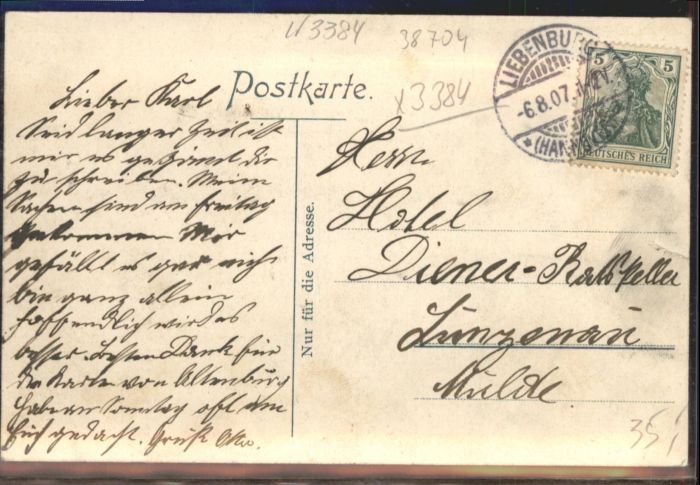 W3384
38704
x3384
Postkarte.
LIEBENBURG
-6.8.07.
*(HANNOVER)
5 5
DEUTSCHES REICH
Lieber Karl
Seid langer Zeit ist
mir es gegönnt dir
zu schreiben. Meine
Sachen sind am Freitag
gekommen Mir
gefällt es gar nich
bin ganz allein
hoffendlich wird es
besser. Besten Dank für
die Karte von Altenburg
habe am Sonntag oft an
Euch gedacht. Gruß Otto.
Nur für die Adresse.
Herrn
Hotel
Diener-Ratskeller
Lunzenau
Mulde
35